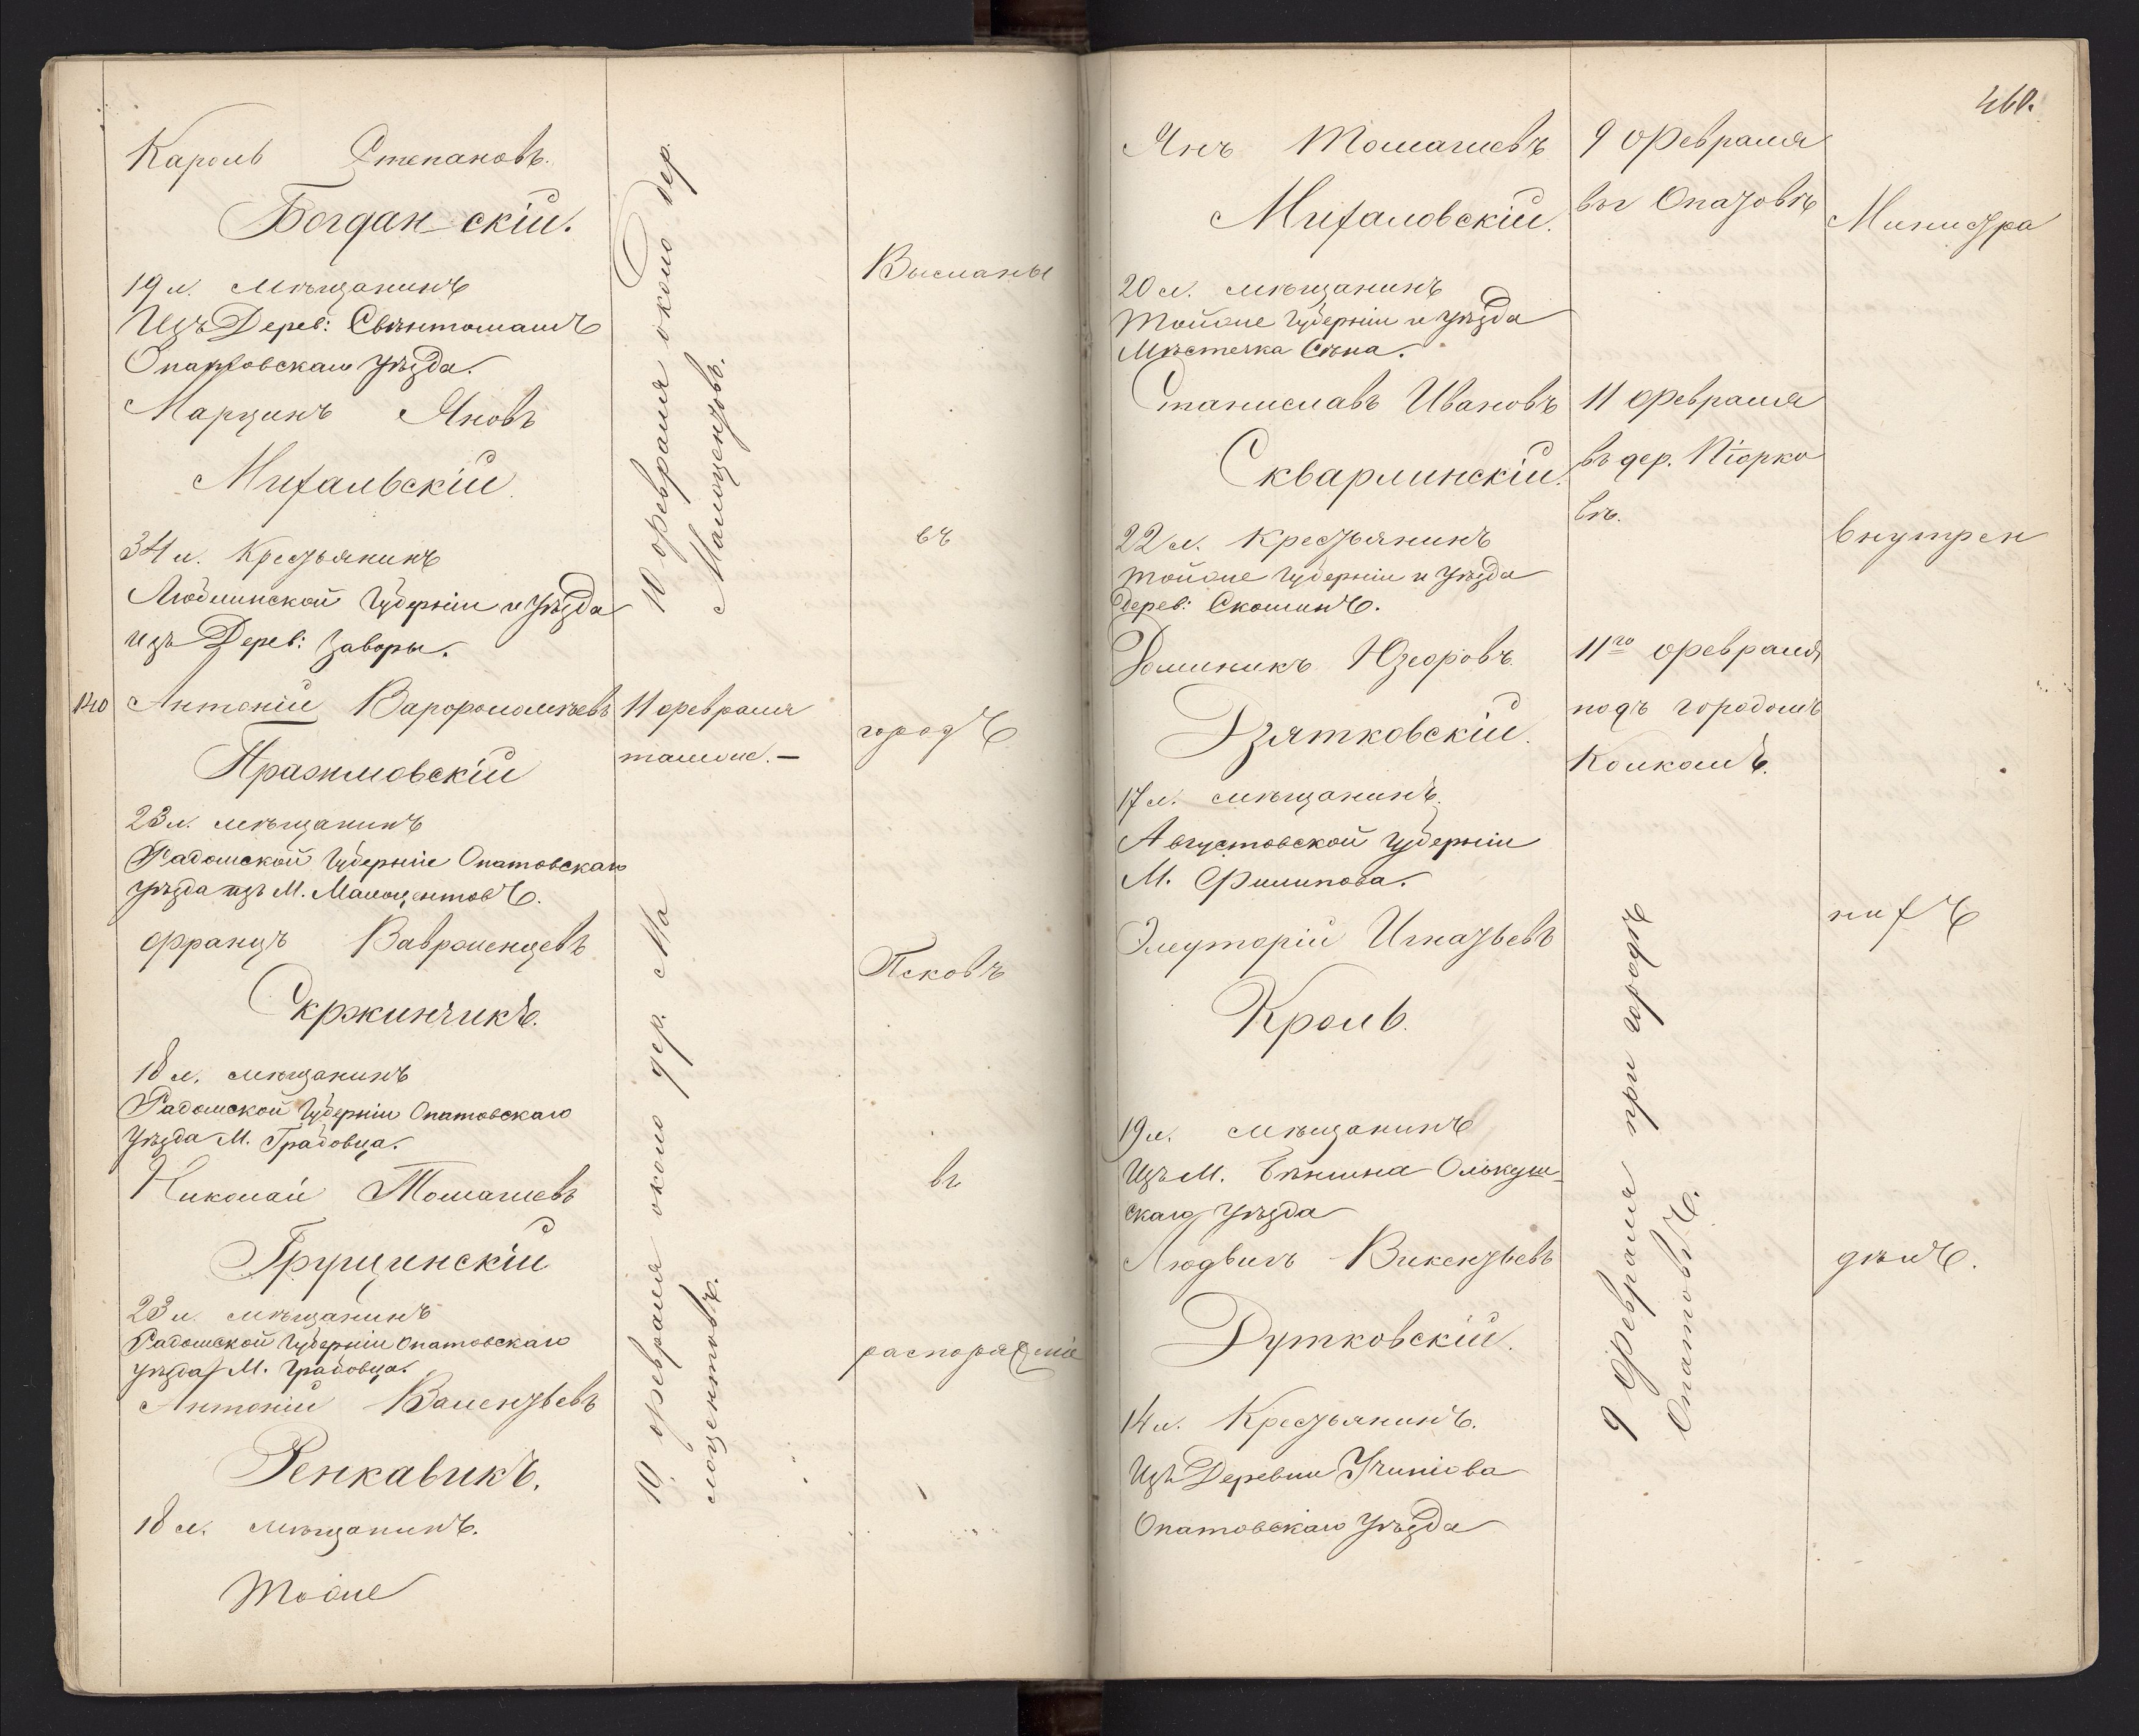 Кароль Степановъ.
Богдан-скій.
19 л. мѣщанинъ
Изъ Дерев: Свѣнтомашъ
Опатовскаго Уѣзда.
Марцинъ Яновъ
Михальскій.
34 л. Крестьянинъ
Люблинской Губерніи и Уѣзда
изъ Дерев: Заворы.
10 февраля около дер.
Малощентовъ.
Высланы
въ
140
Антоній Варфоломѣевъ
Пражмовскій
23 л. мѣщанинъ
Радомской Губерніи Опатовскаго
Уѣзда изъ М. Малощентовъ.
11 февраля
тамже. —
городъ
Францъ Вавроменцевъ
Скржинчикъ.
18 л. мѣщанинъ
Радомской Губерніи Опатовскаго
Уѣзда М. Грабовца.
Псковъ
Николай Томашевъ
Грущинскій
23 л. мѣщанинъ
Радомской Губерніи Опатовскаго
Уѣзда М. Грабовца.
въ
Антоній Валентьевъ
Ренкавикъ.
18 л. мѣщанинъ.
Тоже
10 февраля около дер. Ма
лощентовъ.
распоряженіе
460.
Янъ Томашевъ
Михаловскій.
20 л. мѣщанинъ
Тойже Губерніи и Уѣзда
Мѣстечка Сѣна.
9 Февраля
въ Опатовѣ
Министра
Станиславъ Ивановъ
Скварлинскій.
22 л. Крестьянинъ
Тойже Губерніи и Уѣзда
Дерев: Скошинъ.
11 Февраля
въ дер. Піорко
вѣ.
внутрен
Доминикъ Юзефовъ
Дзятковскій.
17 л. мѣщанинъ.
Августовской Губерніи
М. Филипова.
11го февраля
подъ городомъ
Колкомъ.
Элеуторій Игнатьевъ
Кроль.
19 л. мѣщанинъ
Изъ М. Олькуш-
скаго Уѣзда
нихъ
Людвигъ Викентьевъ
Дутковскій.
14 л. Крестьянинъ.
Изъ Деревни
Опатовскаго Уѣзда
9 Февраля при городѣ
Опатовѣ.
дѣлъ.